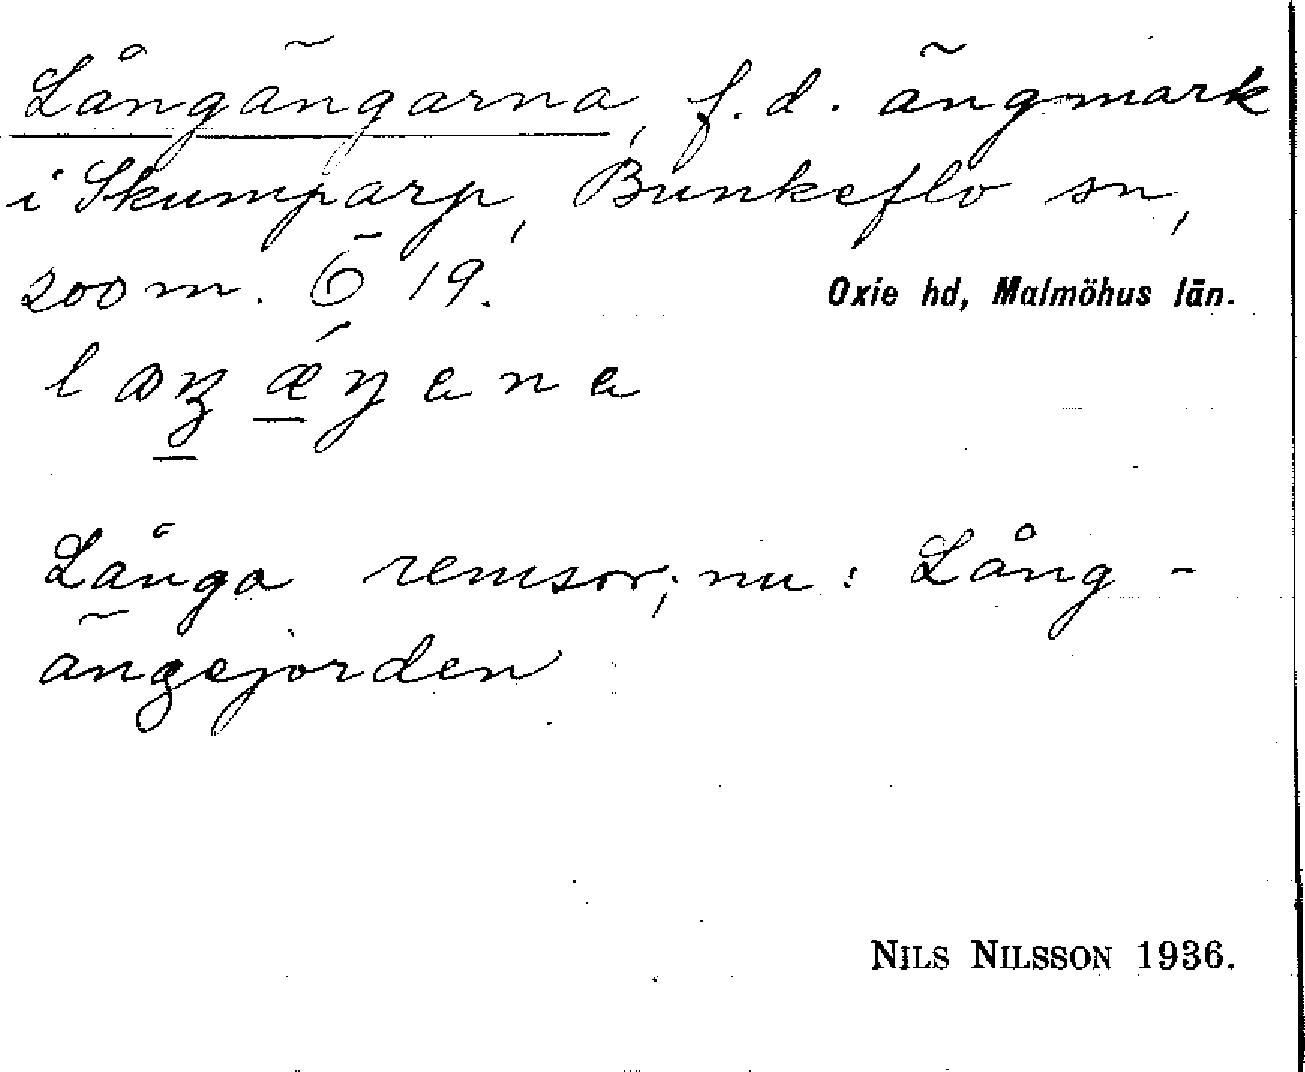 Långängarna, f.d. ängmark
i Skumparp, Bunkeflo sn,
200 m. Ö 19.
Oxie hd, Malmöhus län.
Långa remsor; nu: Lång-
ängejorden
NILS NILSSON 1936.